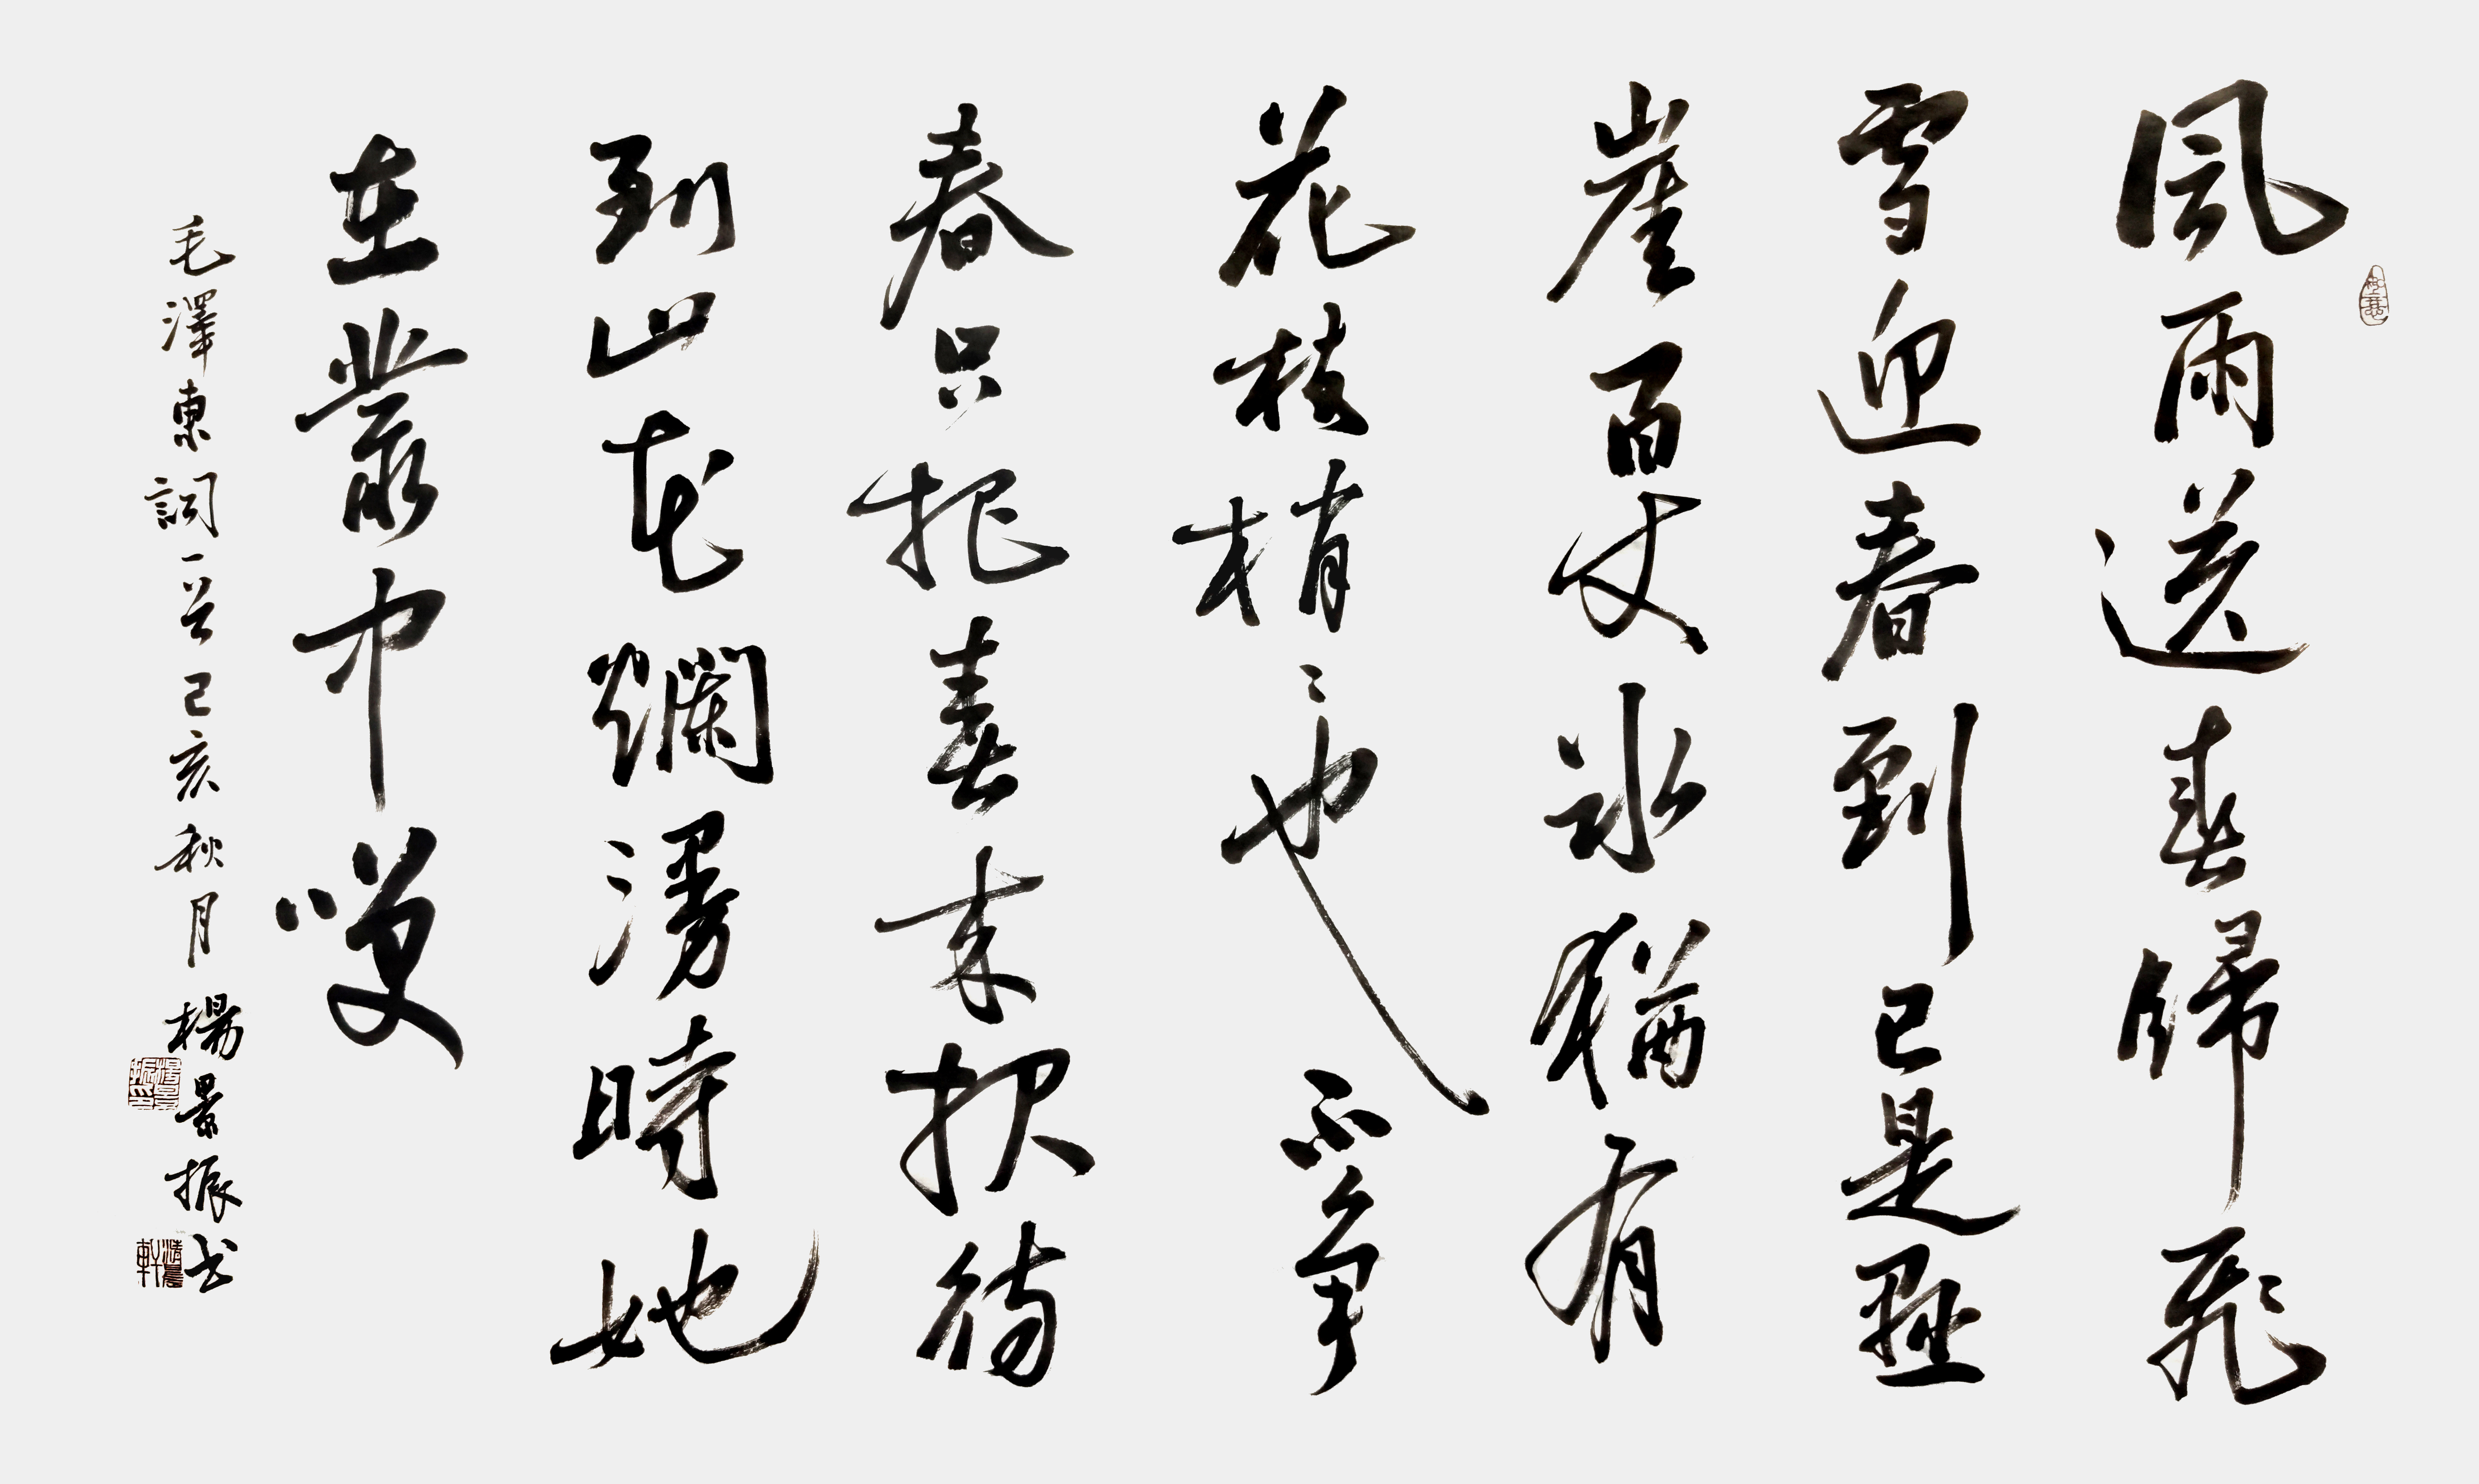 風雨送春歸飛
雪迎春到已是懸
崖百丈冰猶有
花枝梢〻也不爭
春只把春來报待
到山花爛漫時她
在叢中笑
毛澤東詞一首己亥秋月楊景振书
楊景振印
清晨軒